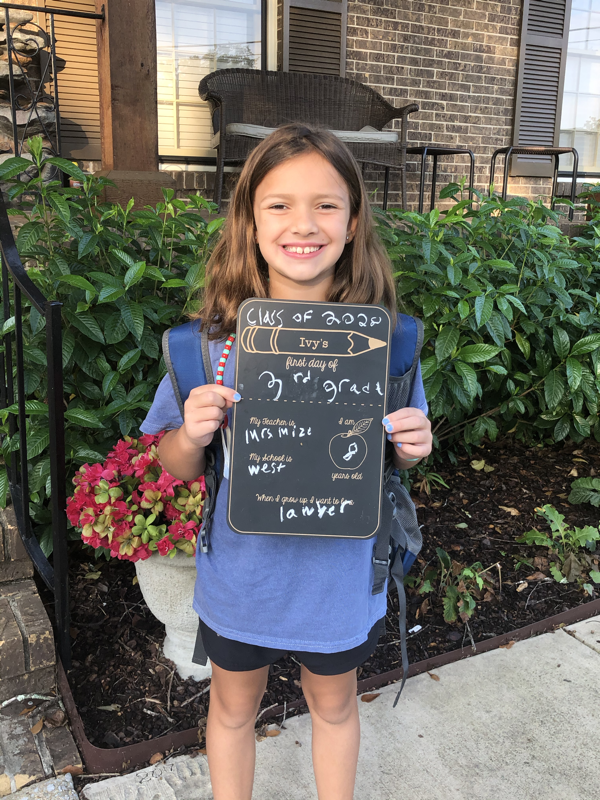 Class of 2028
Ivy's
first day of
3rd grade
My Teacher is
Mrs Mize
I am
8
years old
My School is
West
When I grow up I want to be
lawyer